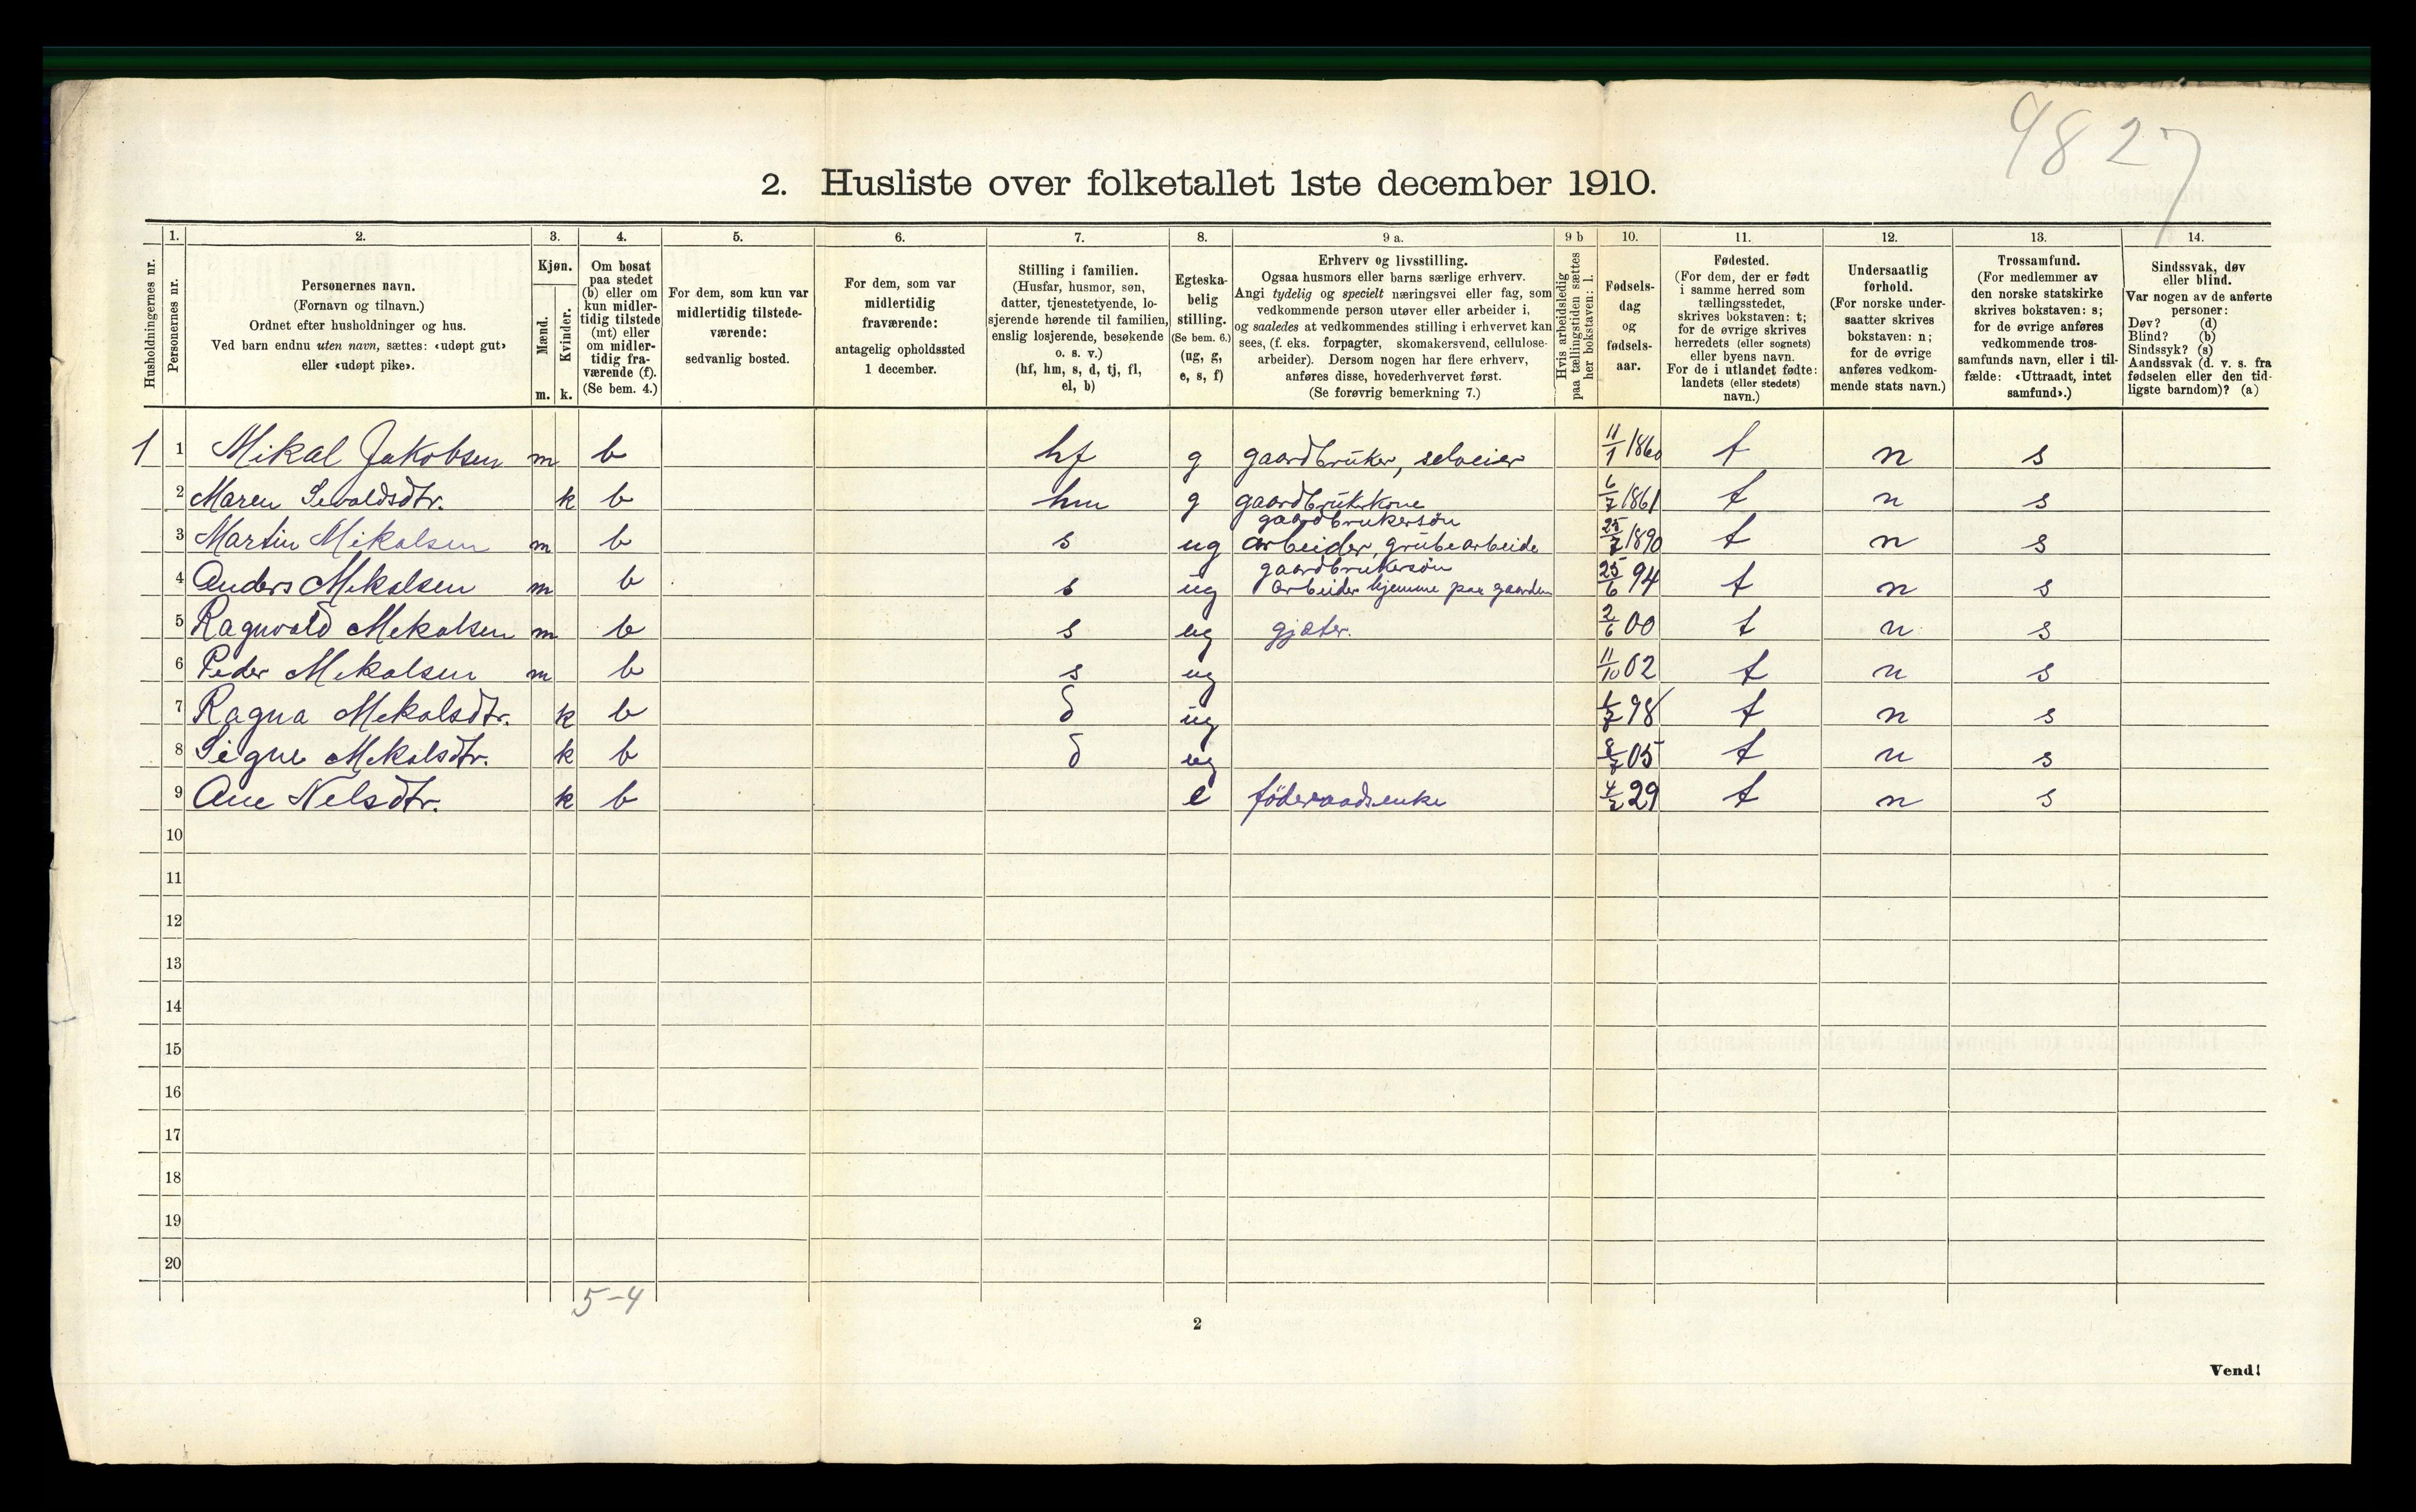 9827
2. Husliste over folketallet 1ste december 1910.
1. 2. 3. 4. 5. 6. 7. 8. 9 a. 9 b 10. 11. 12. 13. 14.
Husholdningernes nr.
Personernes nr.
Personernes navn.
(Fornavn og tilnavn.)
Ordnet efter husholdninger og hus.
Ved barn endnu uten navn, sættes: «udøpt gut»
eller «udøpt pike».
Kjøn.
Mænd.
Kvinder.
m. k.
Om bosat
paa stedet
(b) eller om
kun midler-
tidig tilstede
(mt) eller
om midler-
tidig fra-
værende (f).
(Se bem. 4.)
For dem, som kun var
midlertidig tilstede-
værende:
sedvanlig bosted.
For dem, som var
midlertidig
fraværende:
antagelig opholdssted
1 december.
Stilling i familien.
(Husfar, husmor, søn,
datter, tjenestetyende, lo-
sjerende hørende til familien,
enslig losjerende, besøkende
o. s. v.)
(hf, hm, s, d, tj, fl,
el, b)
Egteska-
belig
stilling.
(Se bem. 6.)
(ug, g,
e, s, f)
Erhverv og livsstilling.
Ogsaa husmors eller barns særlige erhverv.
Angi tydelig og specielt næringsvei eller fag, som
vedkommende person utøver eller arbeider i,
og saaledes at vedkommendes stilling i erhvervet kan
sees, (f. eks. forpagter, skomakersvend, cellulose-
arbeider). Dersom nogen har flere erhverv,
anføres disse, hovederhvervet først.
(Se forøvrig bemerkning 7.)
Hvis arbeidsledig
paa tællingstiden sættes
her bokstaven: l.
Fødsels-
dag
og
fødsels-
aar.
Fødested.
(For dem, der er født
i samme herred som
tællingsstedet,
skrives bokstaven: t;
for de øvrige skrives
herredets (eller sognets)
eller byens navn.
For de i utlandet fødte:
landets (eller stedets)
navn.)
Undersaatlig
forhold.
(For norske under-
saatter skrives
bokstaven: n;
for de øvrige
anføres vedkom-
mende stats navn.)
Trossamfund.
(For medlemmer av
den norske statskirke
skrives bokstaven: s;
for de øvrige anføres
vedkommende tros-
samfunds navn, eller i til-
fælde: «Uttraadt, intet
samfund».)
Sindssvak, døv
eller blind.
Var nogen av de anførte
personer:
Døv? (d)
Blind? (b)
Sindssyk? (s)
Aandssvak (d. v. s. fra
fødselen eller den tid-
ligste barndom)? (a)
1 1 Mikal Jakobsen m b hf g gaardbruker, selveier 11/1 1860 t n s
2 Maren Sevaldsdtr. k b hm g gaardbrukrkone 6/7 1861 t n s
gaardbrukersøn
3 Martin Mikalsen m b s ug arbeider, grubearbeide 25/7 1890 t n s
gaardbrukersøn
4 Anders Mikalsen m b s ug arbeider hjemme paa gaarden 25/6 94 t n s
5 Ragnvald Mikalsen m b s ug gjæter. 2/6 00 t n s
6 Peder Mikalsen m b s ug 11/10 02 t n s
7 Ragna Mikalsdtr. k b d ug 98 t n s
8 Signe Mikalsdtr. k b d ug 05 t n s
9 Ane Nelsdtr. k b e föderaadsenke 29 t n s
10
11
12
13
14
15
16
17
18
19
20
5-4
2
Vend!